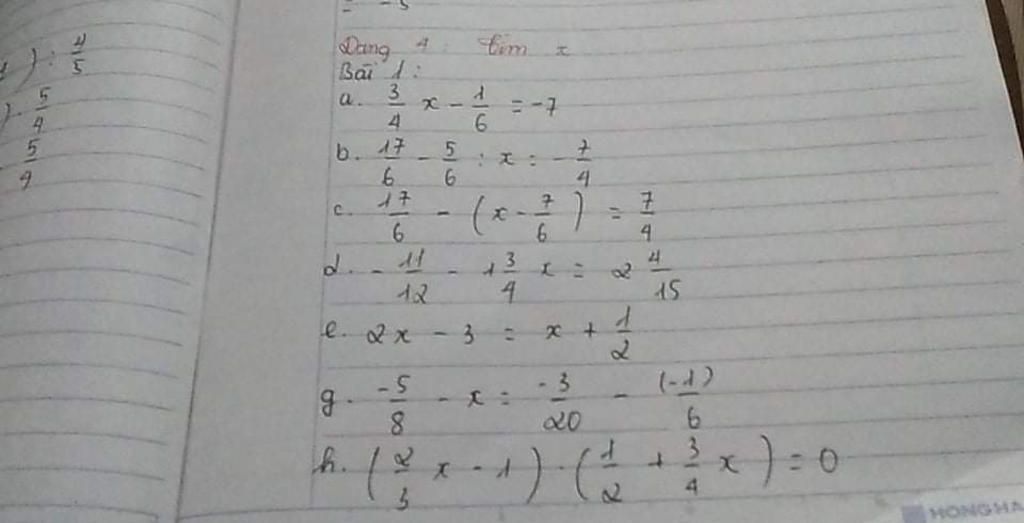 = -5
) : 4/5
Dạng 4 : tìm x
Bài 1 :
). 5/4
a. 3/4 x - 1/6 = -7
5/9
b. 17/6 - 5/6 : x = - 7/4
c. 17/6 - (x - 7/6) = 7/4
d. - 11/12 - 1 3/4 x = 2 4/15
e. 2x - 3 = x + 1/2
g. -5/8 - x = -3/20 - (-1)/6
h. (2/3 x - 1) . (1/2 + 3/4 x) = 0
HONG HA